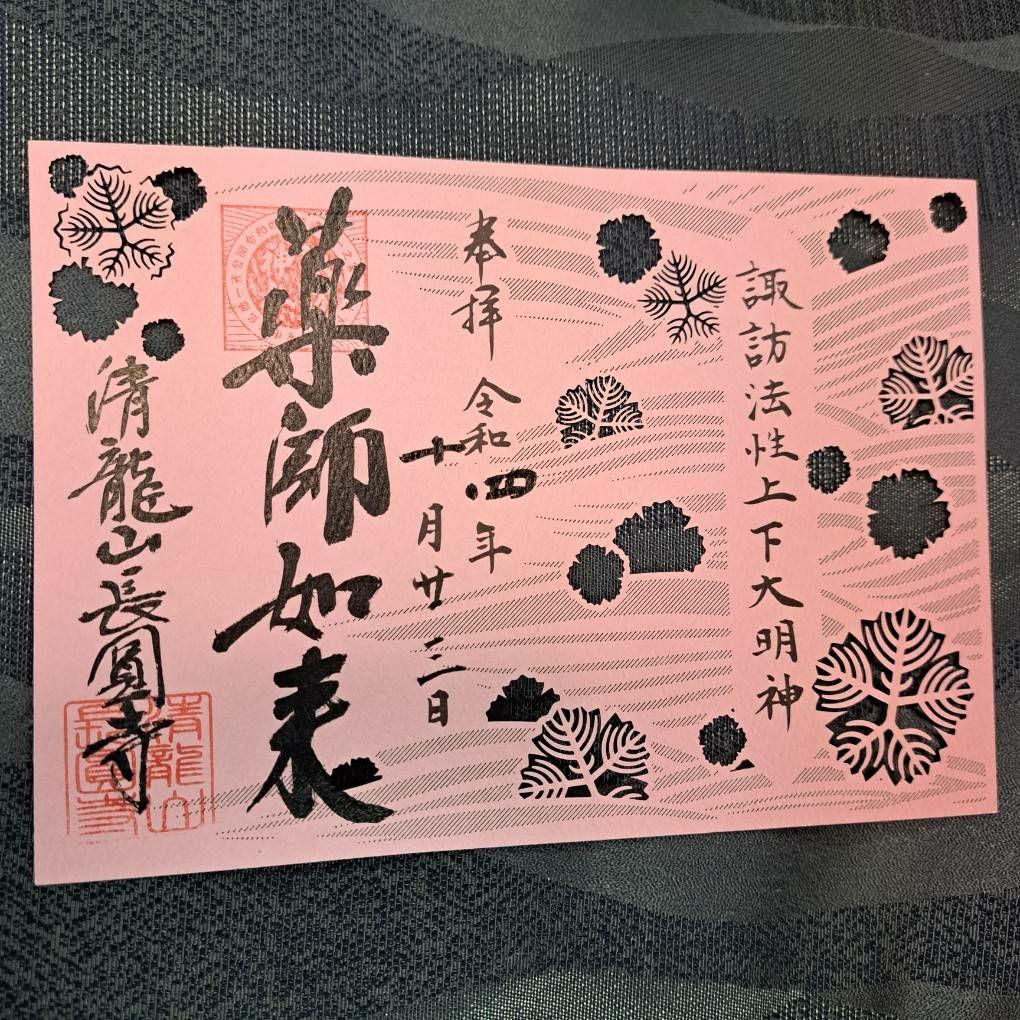 諏訪法性上下大明神
奉拝 令和四年
十月廿三日
薬師如来
清龍山長圓寺
清龍山
長圓寺